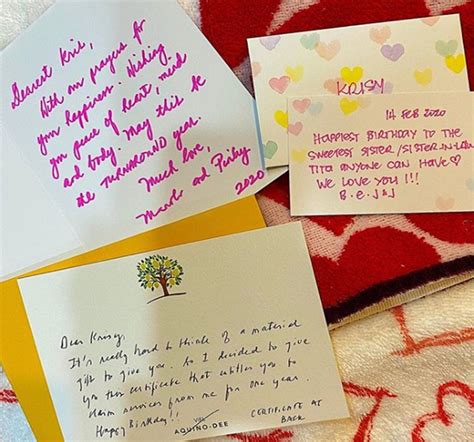 Dearest Kris,
With our prayers for
your happiness. Wishing
you peace of heart, mind
and body. May this be
the TURNAROUND year.
Much love,
and Pinky
2020
KRISY
14 FEB 2020
HAPPIEST BIRTHDAY TO THE
SWEETEST SISTER/SISTER-IN-LAW/
TITA ANYONE CAN HAVE ♡
WE LOVE YOU!!!
B.E.J&J
Dear Krisy,
It's really hard to think of a material
gift to give you. So I decided to give
you this certificate that entitles you to
claim services from me for one year.
Happy Birthday!!
AQUINO-DEE
CERTIFICATE AT
BACK